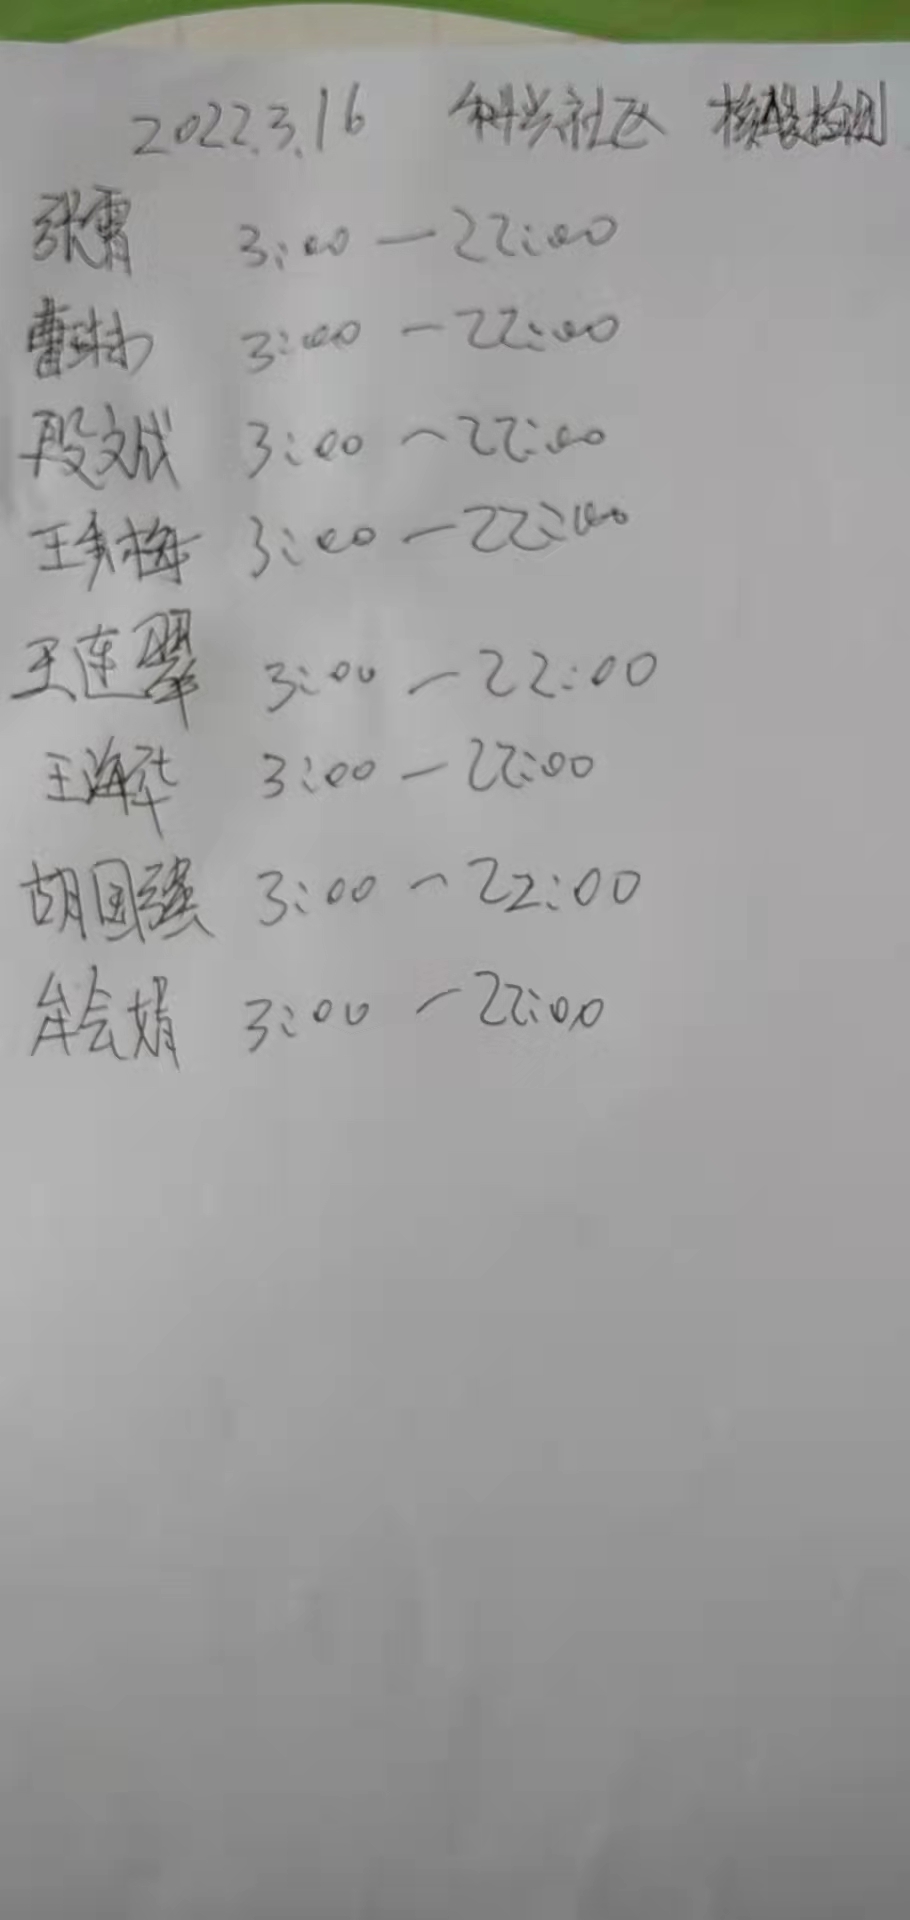 2022.3.16 科兴社区 核酸检测
张霄 3:00—22:00
曹 3:00—22:00
段文成 3:00—22:00
王秀梅 3:00—22:00
王连翠 3:00—22:00
王海华 3:00—22:00
胡国强 3:00—22:00
牟会娟 3:00—22:00